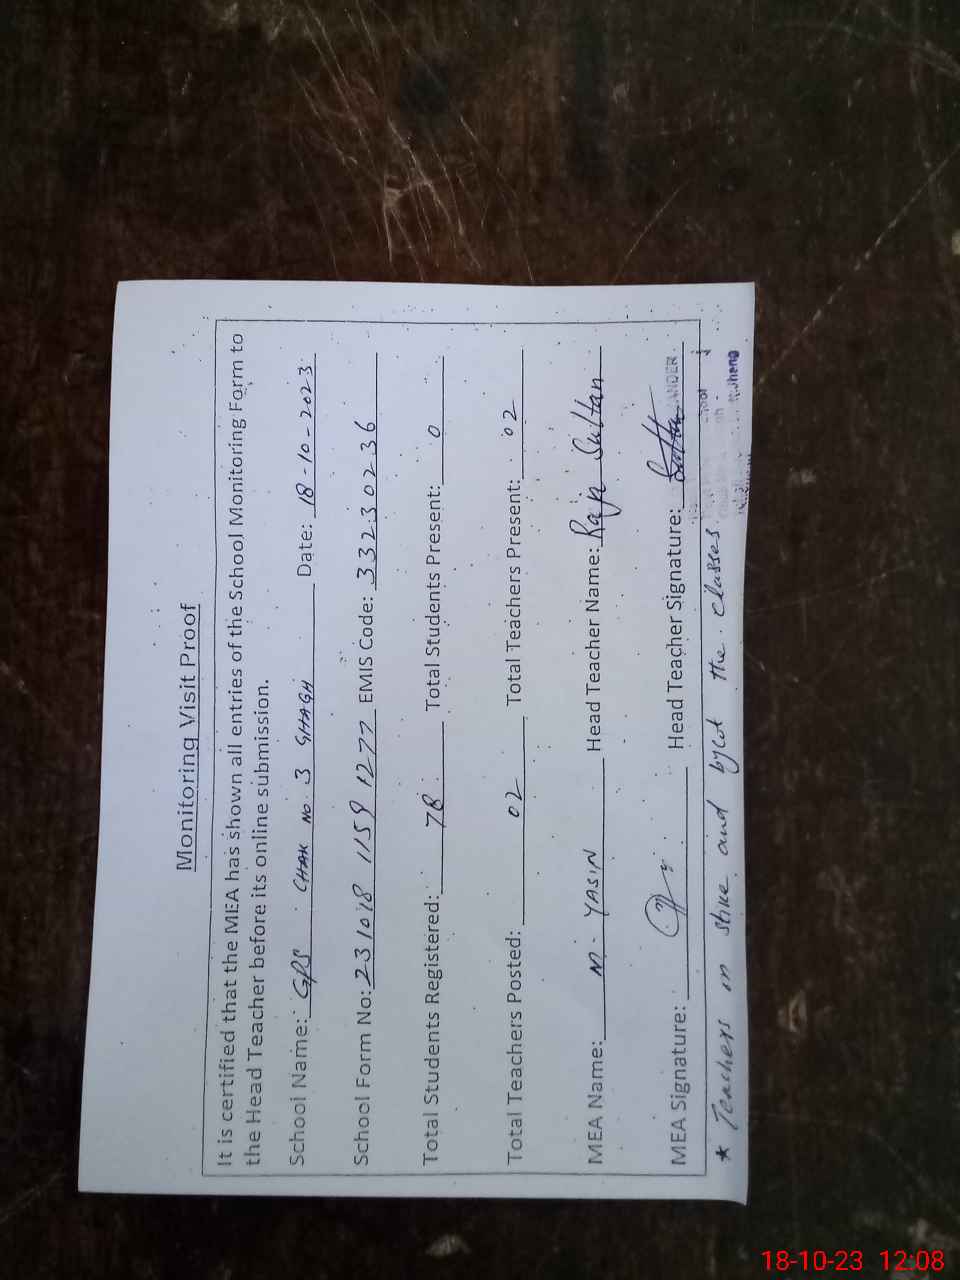 Monitoring Visit Proof
It is certified that the MEA has shown all entries of the School Monitoring Form to
the Head Teacher before its online submission.
School Name: GPS CHAK No. 3 GHAGH Date: 18-10-2023
School Form No: 231018 1159 1277 EMIS Code: 33230236
Total Students Registered: 78 Total Students Present: 0
Total Teachers Posted: 02 Total Teachers Present: 02
MEA Name: M. YASIN Head Teacher Name: Raja Sultan
MEA Signature: Head Teacher Signature:
* Teachers in strike and bycot the classes.
18-10-23 12:08